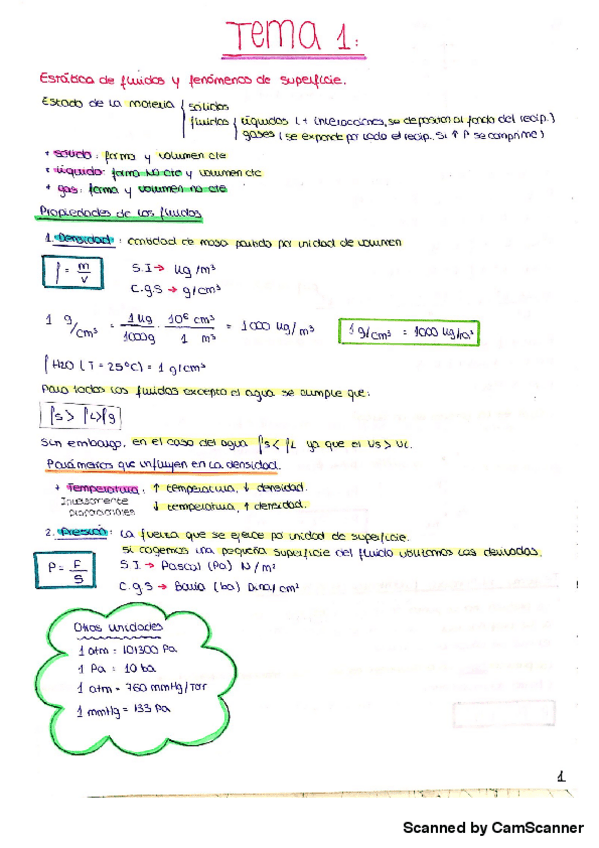 Tema 1:
Estática de fluidos y fenómenos de superficie.
Estado de la materia { sólidos
fluidos { líquidos (+ interacciones, se depositan al fondo del recip.)
gases (se expande por todo el recip. Si ↑ P se comprime)
+ sólido: forma y volumen cte
+ líquido: forma no cte y volumen cte
+ gas: forma y volumen no cte
Propiedades de los fluidos
1. Densidad: cantidad de masa partido por unidad de volumen
ρ = m/v S.I → kg/m³
C.g.S → g/cm³
1 g/cm³ = 1kg/1000g · 10⁶ cm³/1 m³ = 1000 kg/m³ 1 g/cm³ = 1000 kg/m³
ρ H2O (T = 25ºC) = 1 g/cm³
Para todos los fluidos excepto el agua se cumple que:
ρs > ρL > ρg
Sin embargo, en el caso del agua ρs < ρL ya que el Vs > VL.
Parámetros que influyen en la densidad.
+ Temperatura: ↑ temperatura, ↓ densidad.
Inversamente proporcionales ↓ temperatura, ↑ densidad.
2. Presión: La fuerza que se ejerce por unidad de superficie.
Si cogemos una pequeña superficie del fluido utilizamos las derivadas.
P = F/S S.I → Pascal (Pa) N/m²
C.g.S → Baria (ba) Dina/cm²
Otras unidades
1 atm = 101300 Pa
1 Pa = 10 ba
1 atm = 760 mmHg/Torr
1 mmHg = 133 Pa
1
Scanned by CamScanner